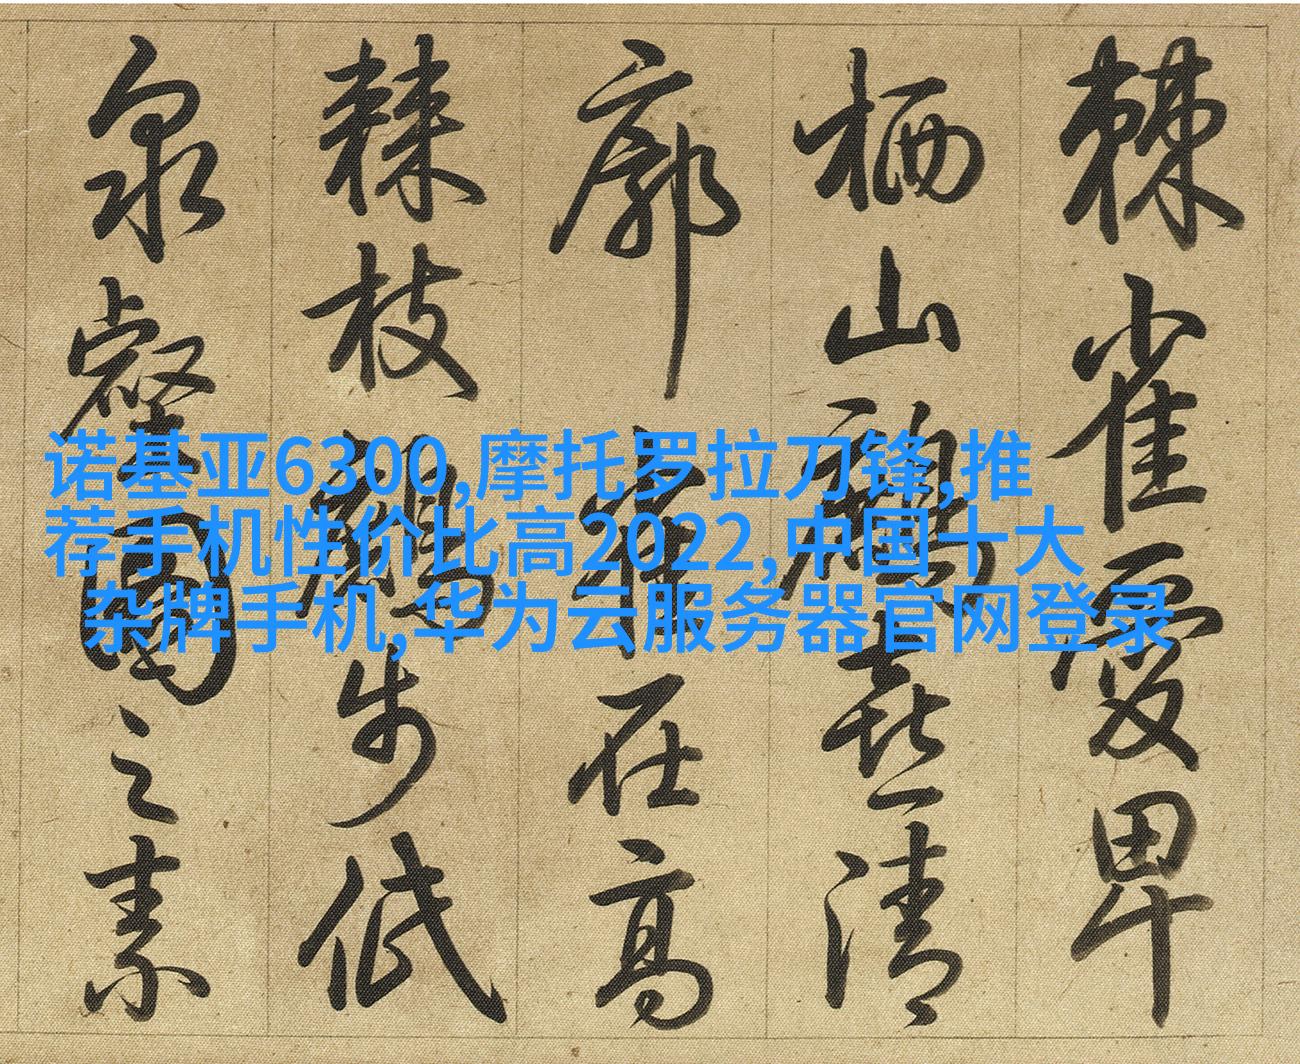 棘雀愛卑
栖山鶴喜清
廓在高
棘枝步低
泉壑園之素
诺基亚6300,摩托罗拉刀锋,推
荐手机性价比高2022,中国十大
杂牌手机,华为云服务器官网登录